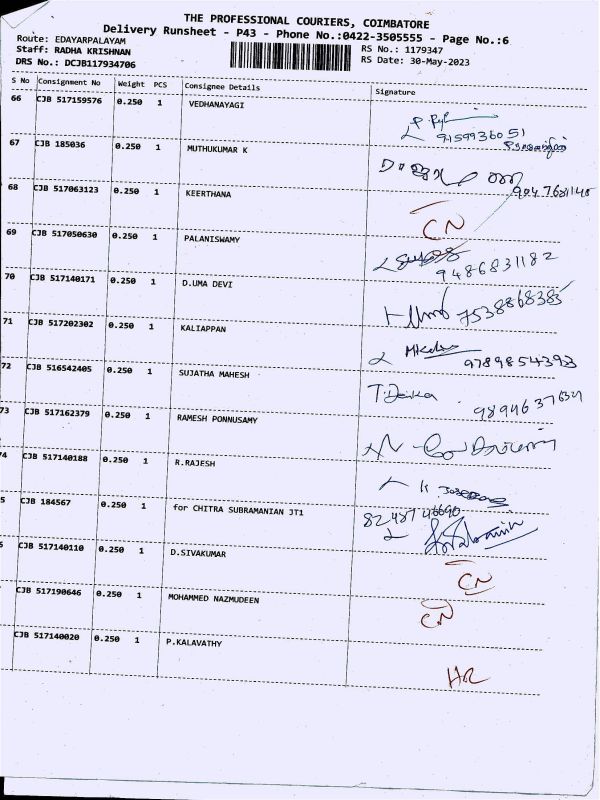 THE PROFESSIONAL COURIERS, COIMBATORE
Delivery Runsheet - P43 - Phone No.:0422-3505555 - Page No.:6
Route: EDAYARPALAYAM
RS No.: 1179347
Staff: RADHA KRISHNAN
RS Date: 30-May-2023
DRS No.: DCJB117934706
S No Consignment No Weight PCS Consignee Details Signature
66 CJB 517159576 0.250 1 VEDHANAYAGI
9159936051
67 CJB 185036 0.250 1 MUTHUKUMAR K
9047681140
68 CJB 517063123 0.250 1 KEERTHANA
CN
69 CJB 517050630 0.250 1 PALANISWAMY
9486831182
70 CJB 517140171 0.250 1 D.UMA DEVI
7538868385
71 CJB 517202302 0.250 1 KALIAPPAN
9789854393
72 CJB 516542405 0.250 1 SUJATHA MAHESH
T.Deika
9894637632
73 CJB 517162379 0.250 1 RAMESH PONNUSAMY
74 CJB 517140188 0.250 1 R.RAJESH
5 CJB 184567 0.250 1 for CHITRA SUBRAMANIAN JT1
8248746690
6 CJB 517140110 0.250 1 D.SIVAKUMAR
CN
CJB 517190646 0.250 1 MOHAMMED NAZMUDEEN
CN
CJB 517140020 0.250 1 P.KALAVATHY
HR